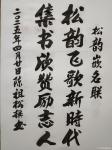 松韵嵌名联
松韵飞歌新時代
集书欣赞励志人
二〇二五年四月廿日陈祖松撰